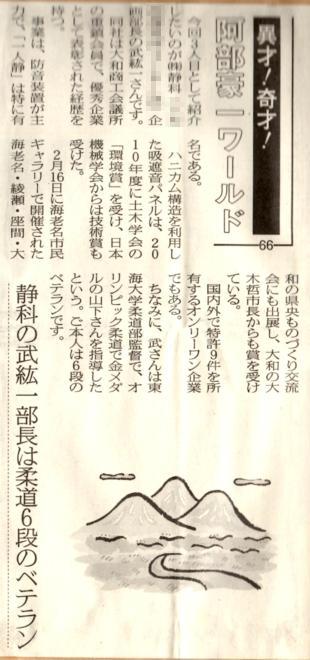 異才！奇才！
阿部豪一ワールド
66
今回3人目として紹介
したいのが㈱静科
企
画部長の武紘一さんです。
同社は大和商工会議所
の重鎮会員で、優秀企業
として表彰された経歴を
持つ。
事業は、防音装置が主
力で、「一人静」は特に有
名である。
ハニカム構造を利用し
た吸遮音パネルは、20
10年度に土木学会の
「環境賞」を受け、日本
機械学会からは技術賞も
受けた。
2月16日に海老名市民
ギャラリーで開催された
海老名・綾瀬・座間・大
和の県央ものづくり交流
会にも出展し、大和の大
木哲市長からも賞を受け
ている。
国内外で特許9件を所
有するオンリーワン企業
でもある。
ちなみに、武さんは東
海大学柔道部監督で、オ
リンピック柔道で金メダ
ルの山下さんを指導した
という。ご本人は6段の
ベテランです。
静科の武紘一部長は柔道6段のベテラン